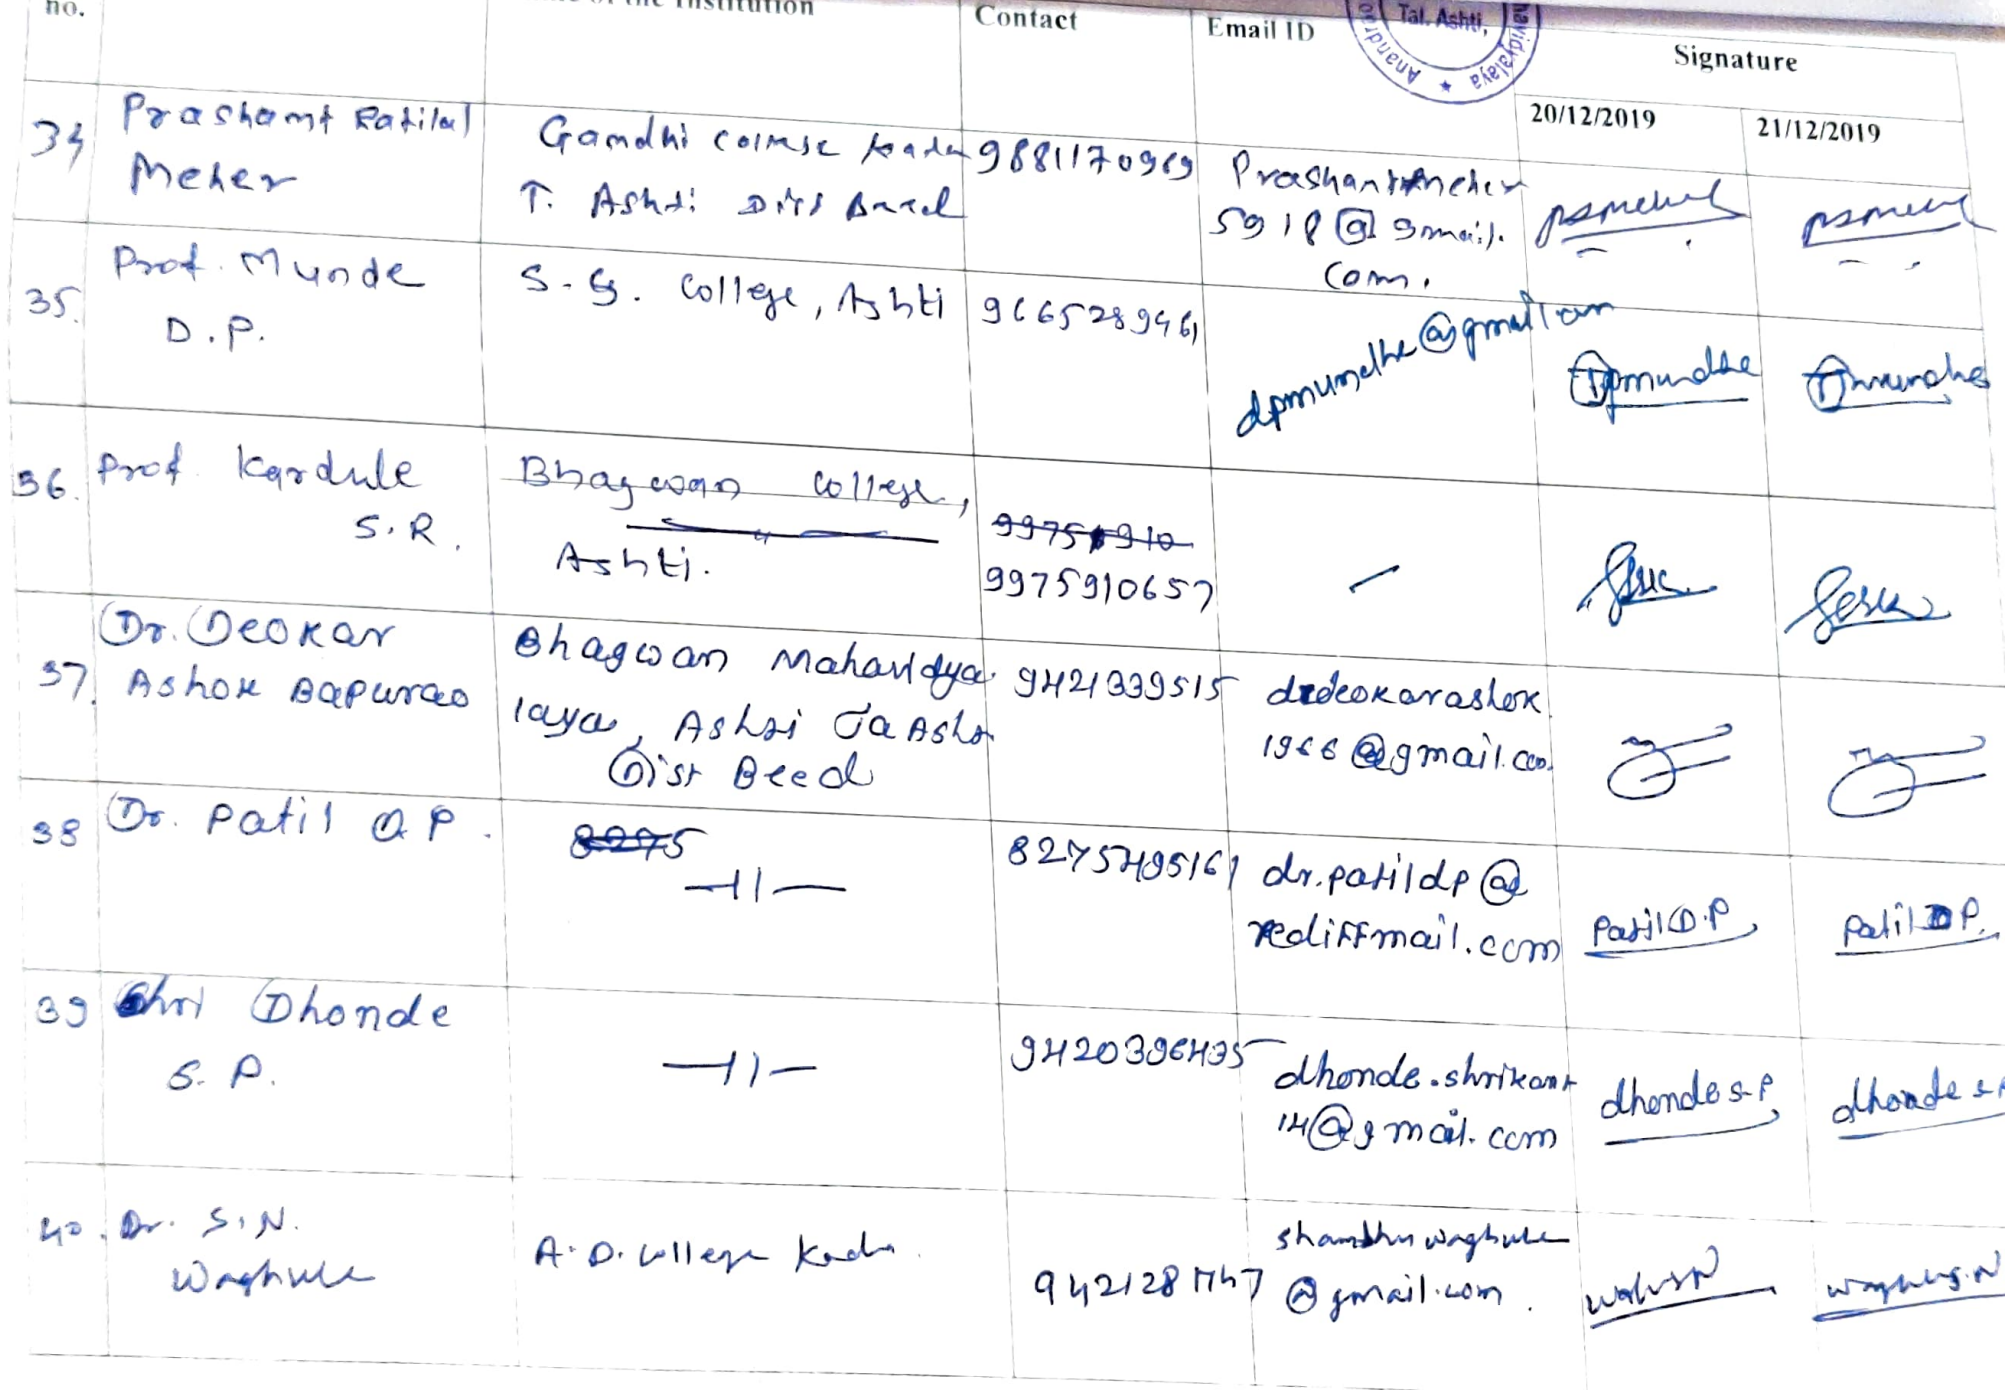 no.
of the Institution
Contact
Email ID
Tal. Ashti,
Signature
20/12/2019
21/12/2019
34
Prashant Ratilal
Meher
Gandhi College Kada
T. Ashti Dist Beed
9881170969
Prashantmeher
5918@gmail.
com.
35.
Prof. Munde
D.P.
S.G. College, Ashti
9665289461
dpmundhe@gmail.com
Dpmundhe
36.
Prof Kardule
S.R.
Bhagwan College,
Ashti.
9975910657
37.
Dr. Deokar
Ashok Bapurao
Bhagwan Mahavidya
laya, Ashti Ta Ashti
Dist Beed
9421339515
drdeokarashok
1966@gmail.com
38
Dr. Patil D P.
8275
—11—
8275495161
dr.patildp@
rediffmail.com
Patil D.P
Patil D P.
39
Shri Dhonde
S. P.
—11—
9420396435
dhonde.shrikant
14@gmail.com
dhonde s.P
dhonde s.P
40.
Dr. S.N.
Waghule
A.D. College Kada.
@gmail.com.